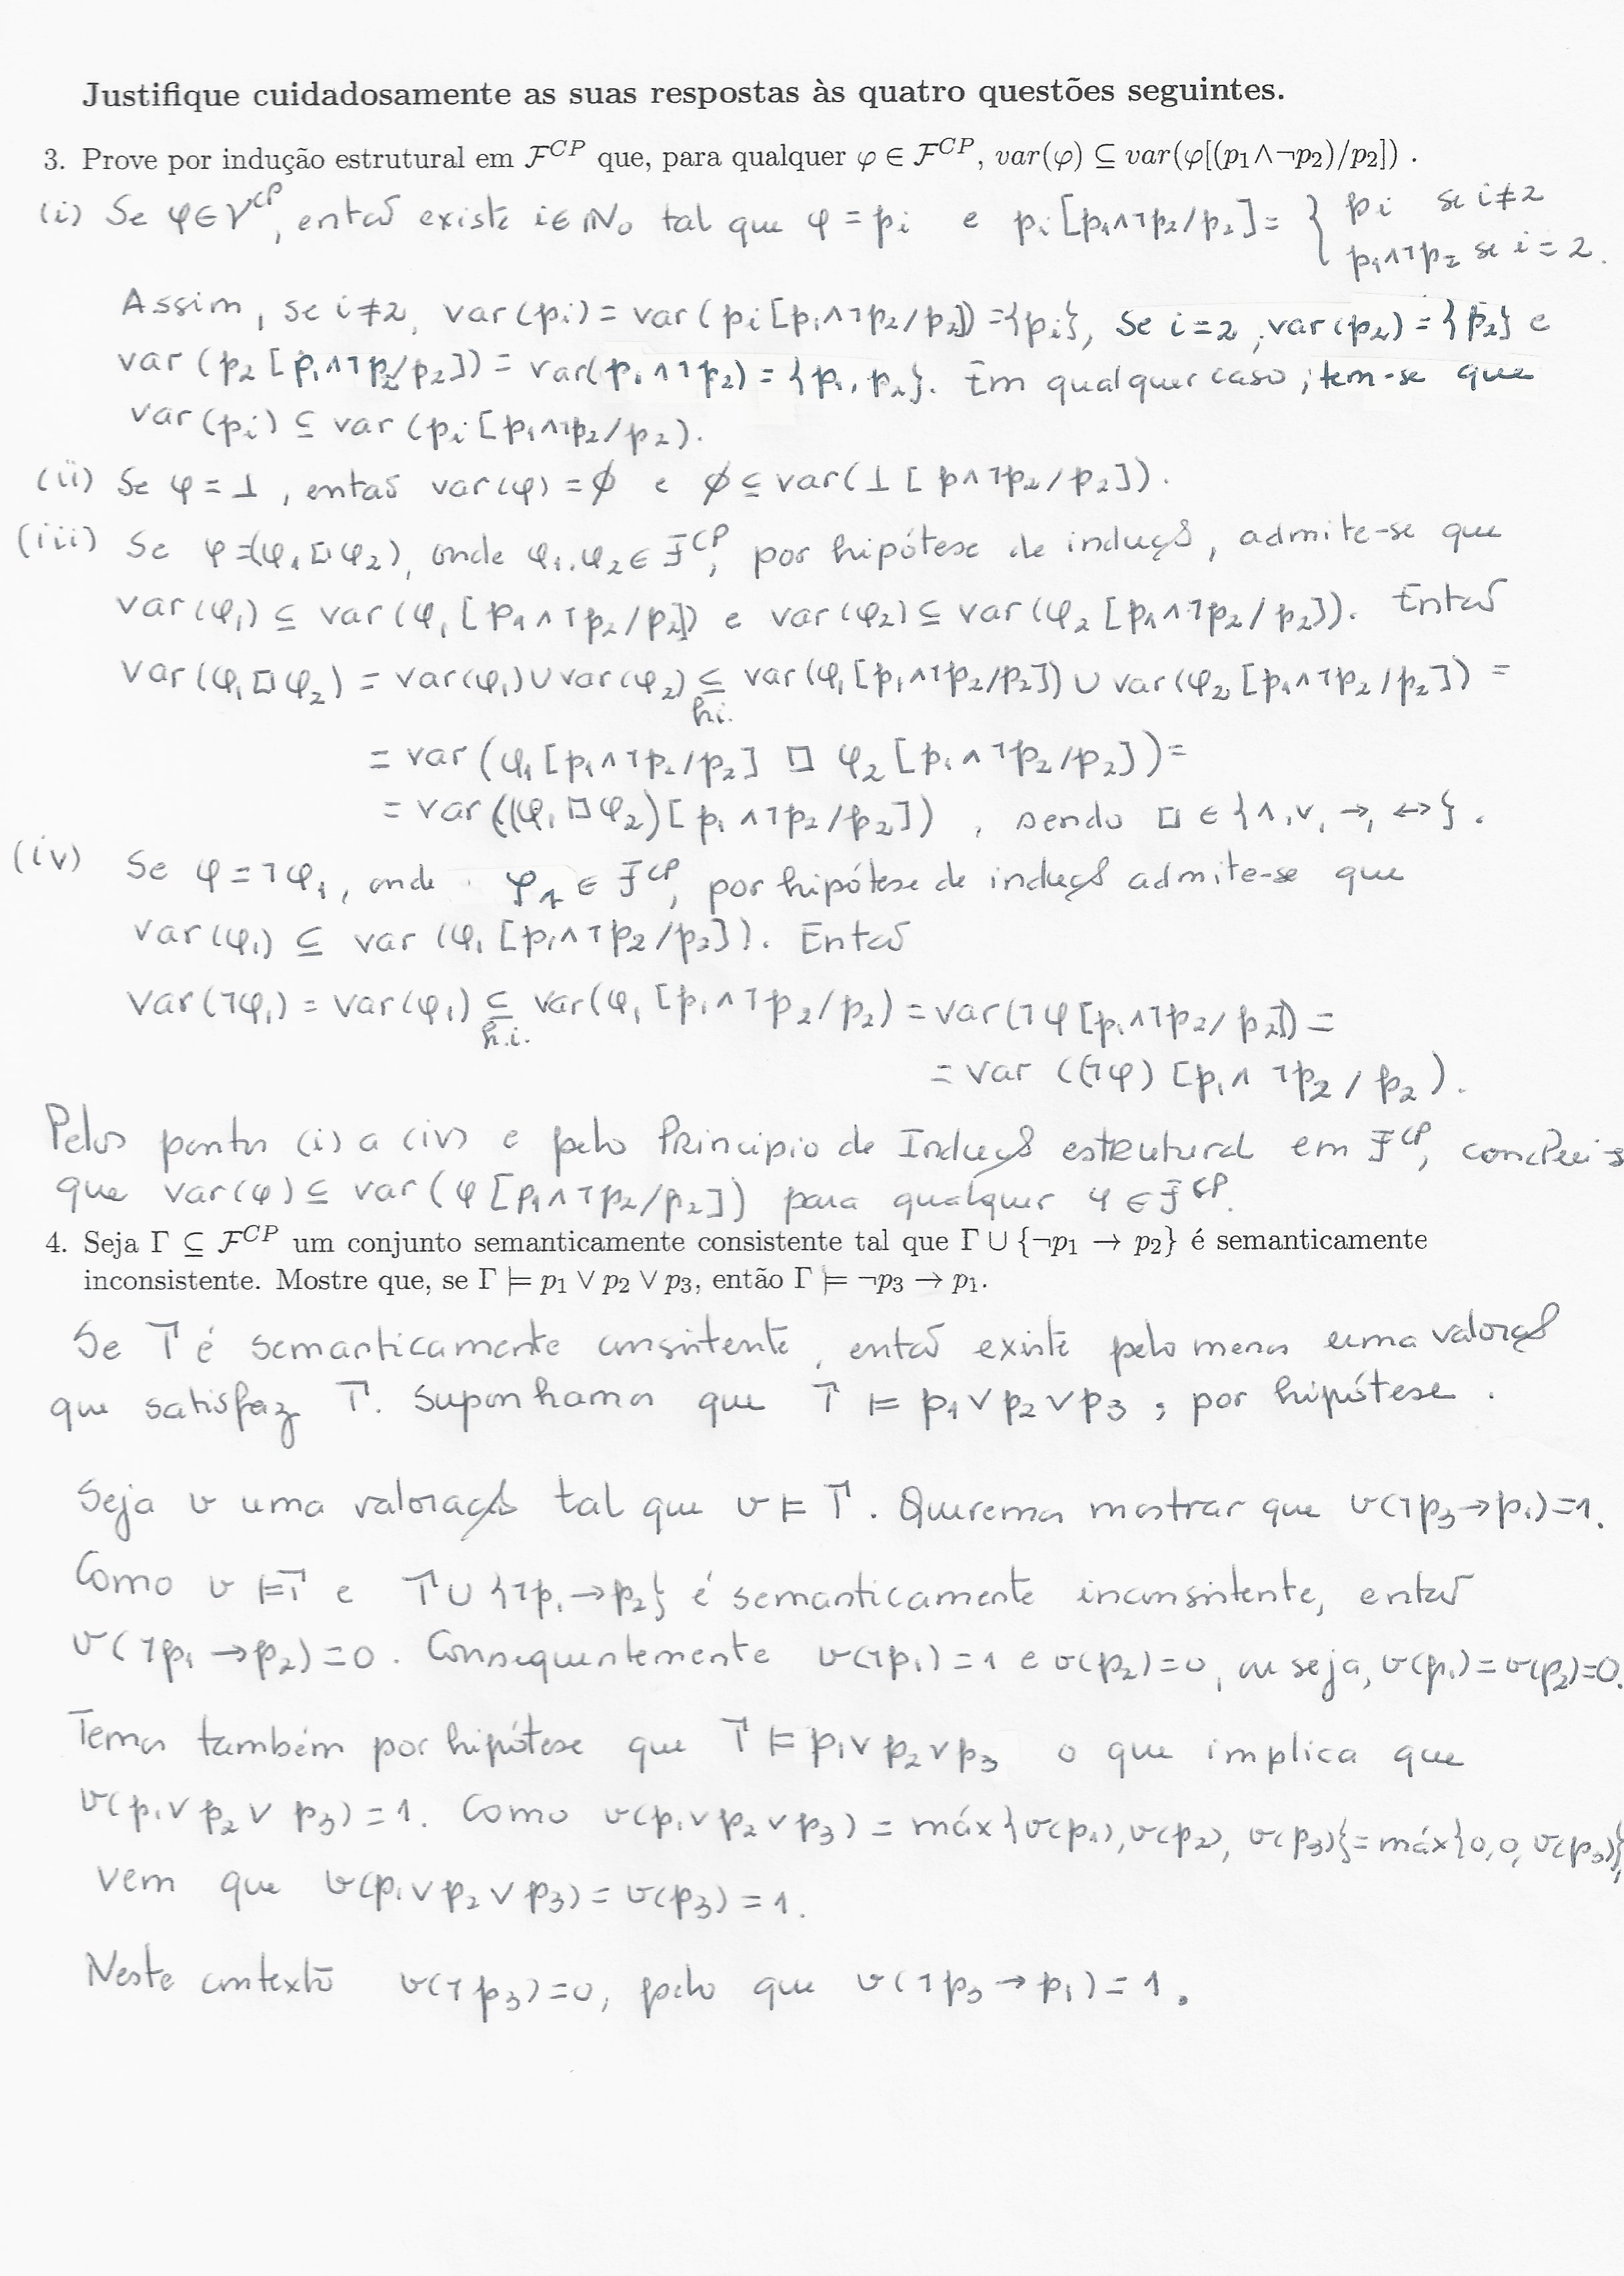 Justifique cuidadosamente as suas respostas às quatro questões seguintes.
3. Prove por indução estrutural em 𝓕^CP que, para qualquer φ ∈ 𝓕^CP, var(φ) ⊆ var(φ[(p₁∧¬p₂)/p₂]) .
(i) Se φ∈𝒱^CP, então existe i∈ℕ₀ tal que φ = pᵢ e pᵢ[p₁∧¬p₂/p₂] = { pᵢ se i≠2
p₁∧¬p₂ se i = 2.
Assim, se i≠2, var(pᵢ) = var(pᵢ[p₁∧¬p₂/p₂]) = {pᵢ}, se i=2, var(p₂) = {p₂} e
var(p₂[p₁∧¬p₂/p₂]) = var(p₁∧¬p₂) = {p₁, p₂}. Em qualquer caso, tem-se que
var(pᵢ) ⊆ var(pᵢ[p₁∧¬p₂/p₂).
(ii) Se φ = ⊥, então var(φ) = ∅ e ∅ ⊆ var(⊥[p∧¬p₂/p₂]).
(iii) Se φ=(φ₁□φ₂), onde φ₁,φ₂∈𝓕^CP, por hipótese de indução, admite-se que
var(φ₁) ⊆ var(φ₁[p₁∧¬p₂/p₂]) e var(φ₂) ⊆ var(φ₂[p₁∧¬p₂/p₂]). Então
var(φ₁□φ₂) = var(φ₁)∪var(φ₂) ⊆ var(φ₁[p₁∧¬p₂/p₂]) ∪ var(φ₂[p₁∧¬p₂/p₂]) =
h.i.
= var(φ₁[p₁∧¬p₂/p₂] □ φ₂[p₁∧¬p₂/p₂]) =
= var((φ₁□φ₂)[p₁∧¬p₂/p₂]) , sendo □∈{∧,∨,→,↔}.
(iv) Se φ = ¬φ₁, onde φ₁∈𝓕^CP, por hipótese de indução admite-se que
var(φ₁) ⊆ var(φ₁[p₁∧¬p₂/p₂]). Então
var(¬φ₁) = var(φ₁) ⊆ var(φ₁[p₁∧¬p₂/p₂) = var(¬φ[p₁∧¬p₂/p₂]) =
h.i.
= var((¬φ)[p₁∧¬p₂/p₂).
Pelos pontos (i) a (iv) e pelo Princípio de Indução estrutural em 𝓕^CP, conclui-s
que var(φ) ⊆ var(φ[p₁∧¬p₂/p₂]) para qualquer φ∈𝓕^CP.
4. Seja Γ ⊆ 𝓕^CP um conjunto semanticamente consistente tal que Γ ∪ {¬p₁ → p₂} é semanticamente
inconsistente. Mostre que, se Γ ⊨ p₁ ∨ p₂ ∨ p₃, então Γ ⊨ ¬p₃ → p₁.
Se Γ é semanticamente consistente, então existe pelo menos uma valoração
que satisfaz Γ. Suponhamos que Γ ⊨ p₁∨p₂∨p₃, por hipótese.
Seja v uma valoração tal que v ⊨ Γ. Queremos mostrar que v(¬p₃→p₁)=1.
Como v ⊨ Γ e Γ∪{¬p₁→p₂} é semanticamente inconsistente, então
v(¬p₁→p₂)=0. Consequentemente v(¬p₁)=1 e v(p₂)=0, ou seja, v(p₁)=v(p₂)=0.
Temos também por hipótese que Γ ⊨ p₁∨p₂∨p₃ o que implica que
v(p₁∨p₂∨p₃)=1. Como v(p₁∨p₂∨p₃) = máx{v(p₁),v(p₂), v(p₃)}=máx{0,0,v(p₃)},
vem que v(p₁∨p₂∨p₃)=v(p₃)=1.
Neste contexto v(¬p₃)=0, pelo que v(¬p₃→p₁)=1.